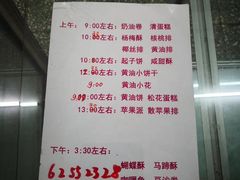 上午： 9:00左右：奶油卷 清蛋糕
10:00左右：杨梅酥 核桃排
椰丝排 黄油排
10:00左右：起子饼 咸甜酥
12:00左右：黄油小饼干
9:00 黄油小花
9:00左右：黄油饼 松花蛋糕
13:00左右：苹果派 散苹果排
下午： 3:30左右：
62552328 蝴蝶酥 马蹄酥